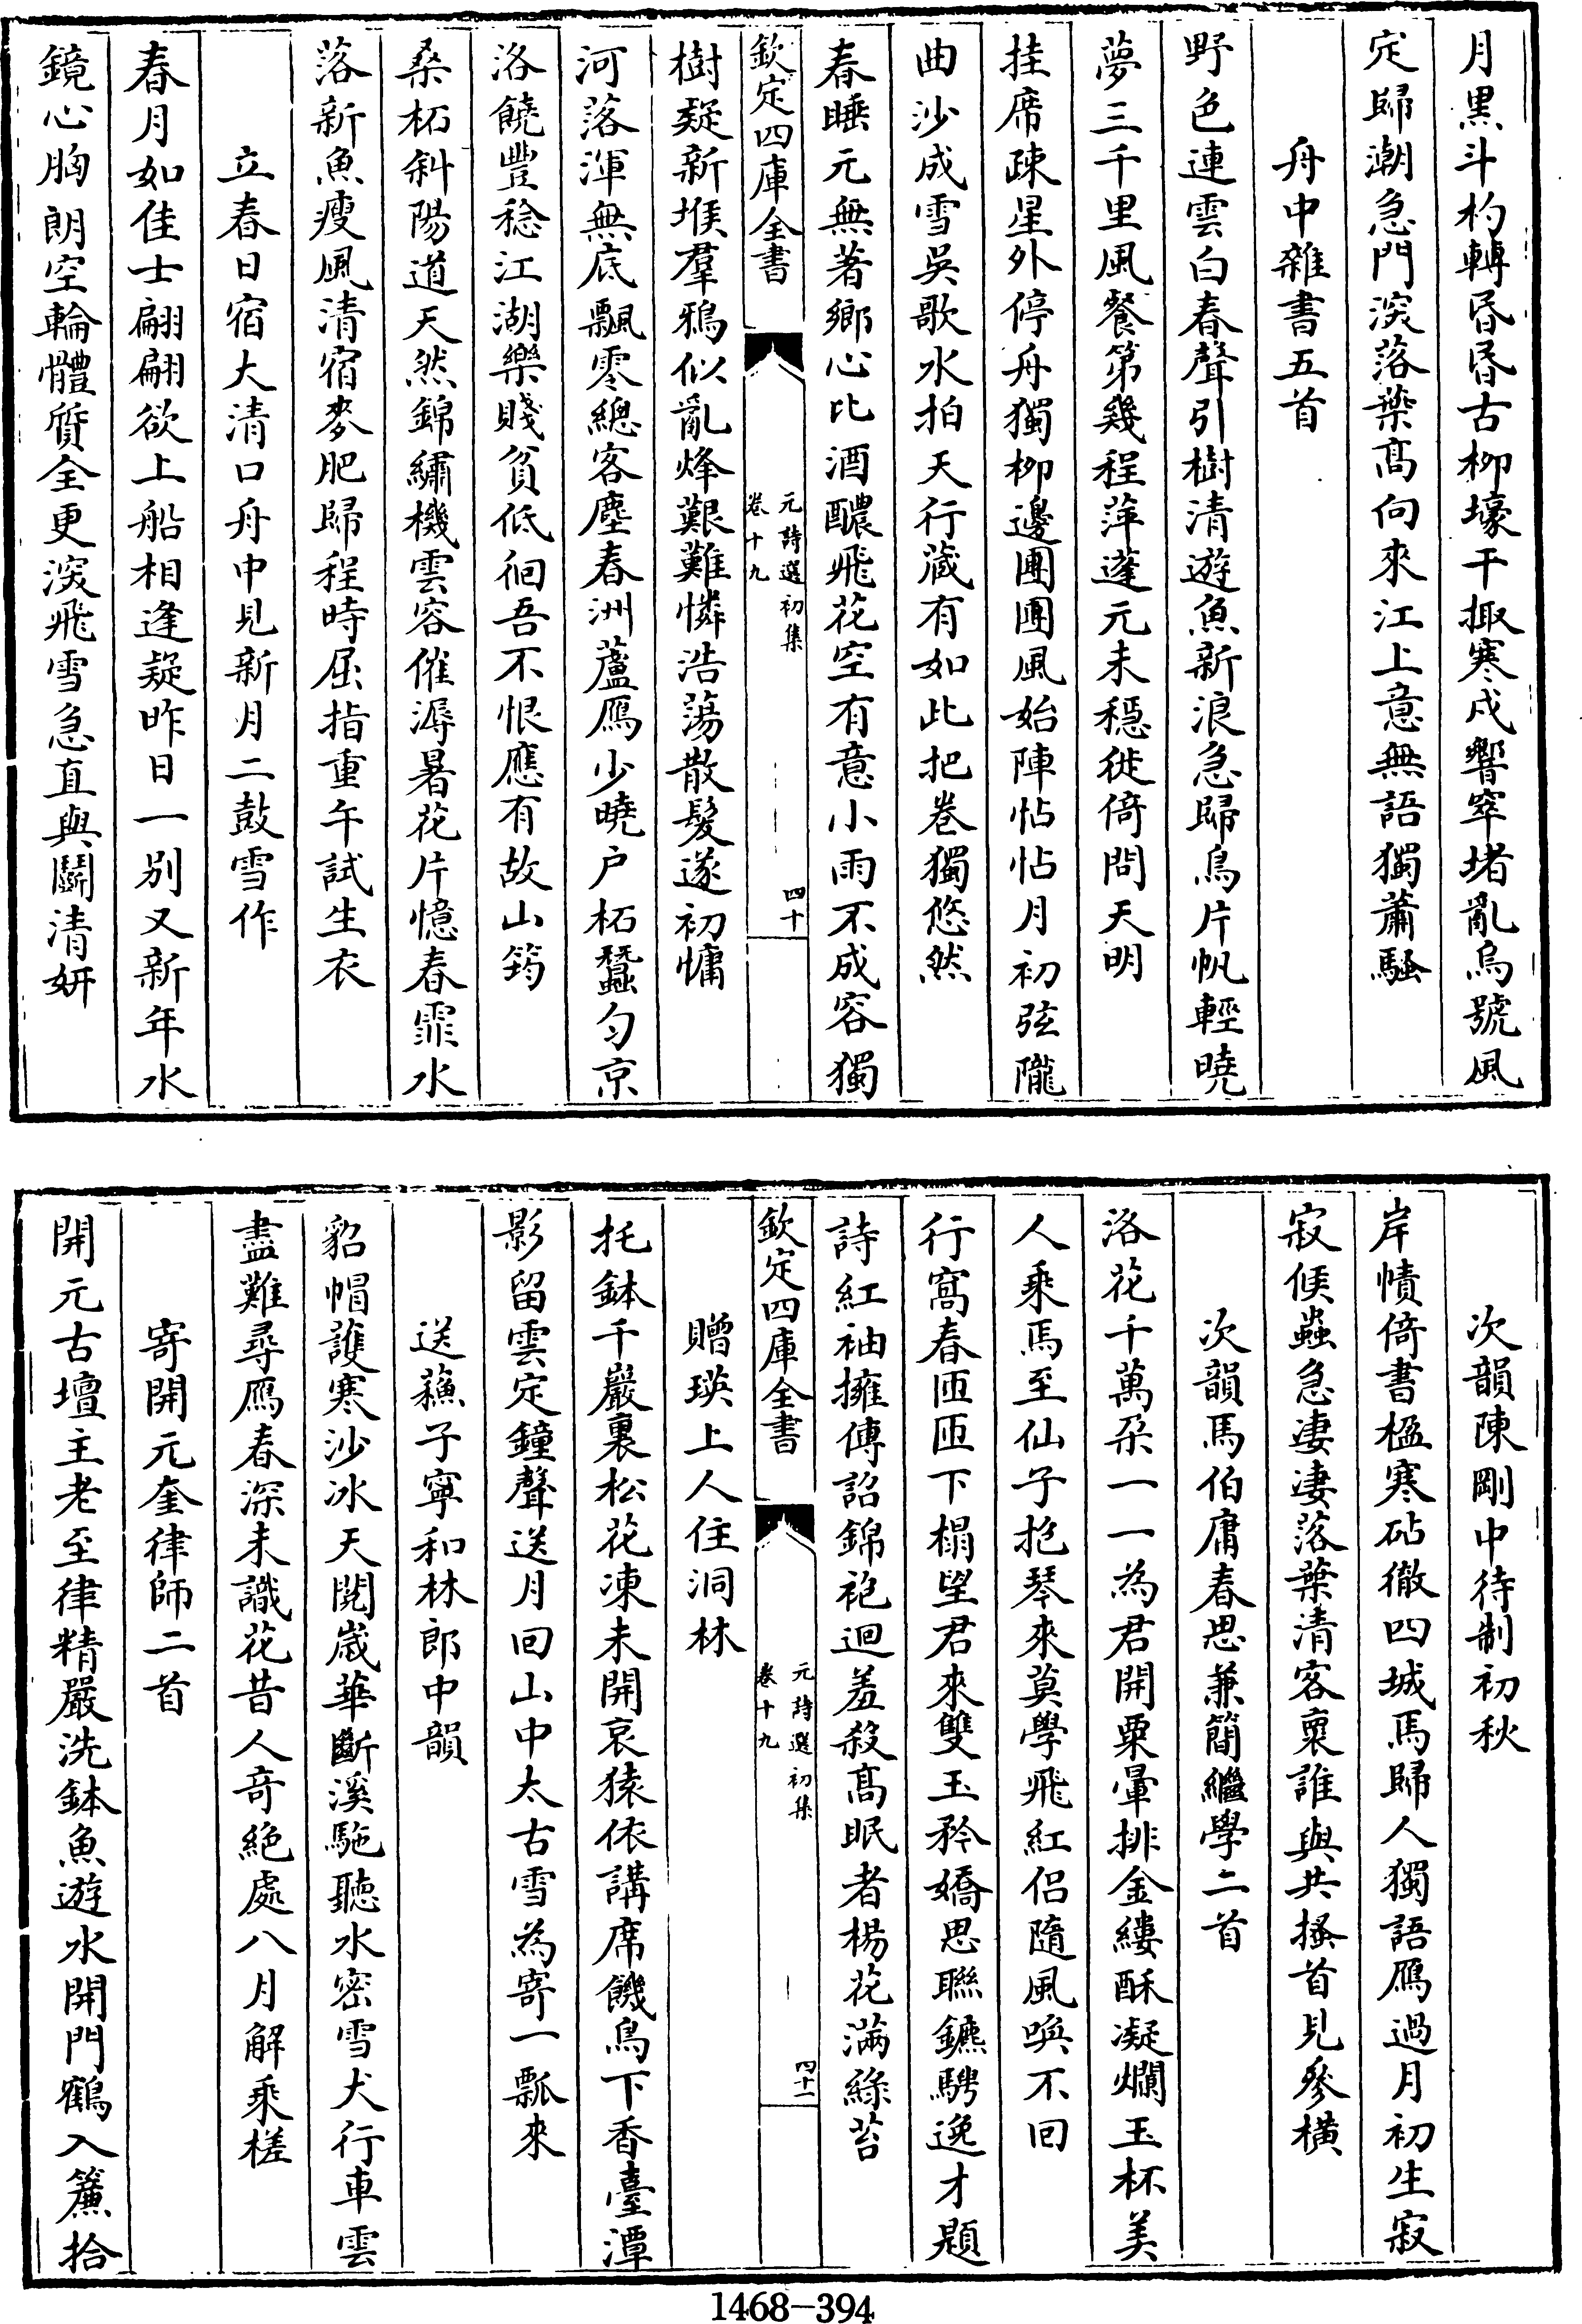 月黒斗杓轉昏昏古柳壕干掫寒戍響窣堵亂烏號風
定歸潮急門深落葉髙向來江上意無語獨蕭騷
舟中雜書五首
野色連雲白春聲引樹清遊魚新浪急歸鳥片帆輕曉
夢三千里風餐第幾程萍蓬元未穩徙倚問天明
挂席疎星外停舟獨柳邊團團風始陣帖帖月初弦隴
曲沙成雪吳歌水拍天行藏有如此把卷獨悠然
春睡元無著鄉心比酒醲飛花空有意小雨不成容獨
欽定四庫全書
元詩選初集
卷十九
四十
樹疑新堠羣鴉似亂烽艱難憐浩蕩散髮遂初慵
河落渾無底飄零總客塵春洲蘆鴈少曉户柘蠶匀京
洛饒豐稔江湖樂賤貧低徊吾不恨應有故山筠
桑柘斜陽道天然錦繡機雲容催溽暑花片憶春霏水
落新魚瘦風清宿麥肥歸程時屈指重午試生衣
立春日宿大清口舟中見新月二鼓雪作
春月如佳士翩翩欲上船相逢疑昨日一别又新年水
鏡心胸朗空輪體質全更深飛雪急直與鬭清妍
次韻陳剛中待制初秋
岸幘倚書楹寒砧徹四城馬歸人獨語鴈過月初生寂
寂候蟲急凄凄落葉清客裏誰與共搔首見參橫
次韻馬伯庸春思兼簡繼學二首
洛花千萬朶一一為君開粟暈排金縷酥凝爛玉杯美
人乘馬至仙子抱琴來莫學飛紅侣隨風喚不回
行窩春匝匝下榻望君來雙玉矜嬌思聯鑣騁逸才題
詩紅袖擁傅詔錦袍迴羞殺髙眠者楊花滿綠苔
欽定四庫全書
元詩選初集
卷十九
四十一
贈瑛上人住洞林
托鉢千巖裏松花凍未開哀猿依講席饑鳥下香臺潭
影留雲定鐘聲送月回山中太古雪為寄一瓢來
送蘓子寧和林郎中韻
貂帽護寒沙冰天閱嵗華斷溪駞聽水密雪犬行車雲
盡難尋鴈春深未識花昔人奇絶處八月解乘槎
寄開元奎律師二首
開元古壇主老至律精嚴洗鉢魚遊水開門鶴入簾拾
1468—394